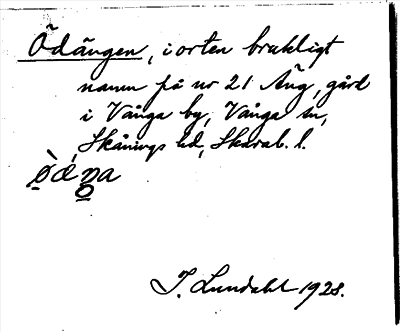 Ödängen, i orten brukligt
namn på nr 21 Äng, gård
i Vånga by, Vånga sn,
Skånings hd, Skarab. l.
I. Lundahl 1928.